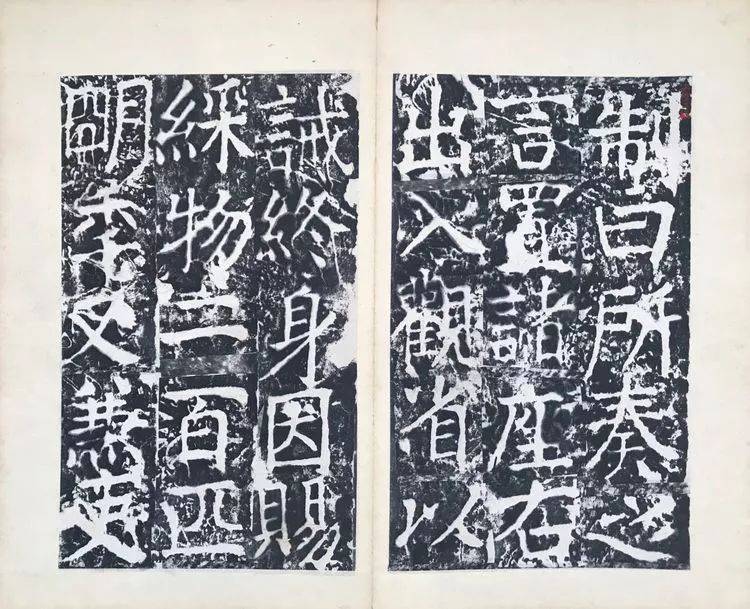 制曰所奏之
言置諸座右
出入觀省以
誡終身因賜
綵物二百匹
明秊又兼吏